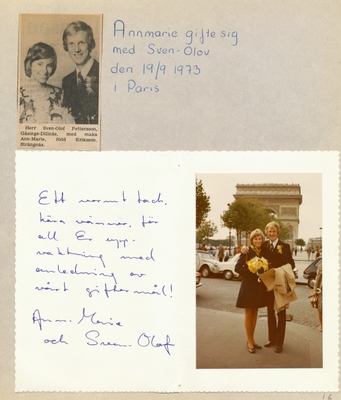 Annmarie gifte sig
med Sven-Olov
den 19/9 1973
i Paris
Herr Sven-Olof Pettersson,
med maka
Ann-Marie, född Erikson.
Strängnäs.
Ett varmt tack,
kära vänner, för
all Er upp-
vaktning med
anledning av
vårt giftermål!
Ann-Marie
och Sven-Olof
16